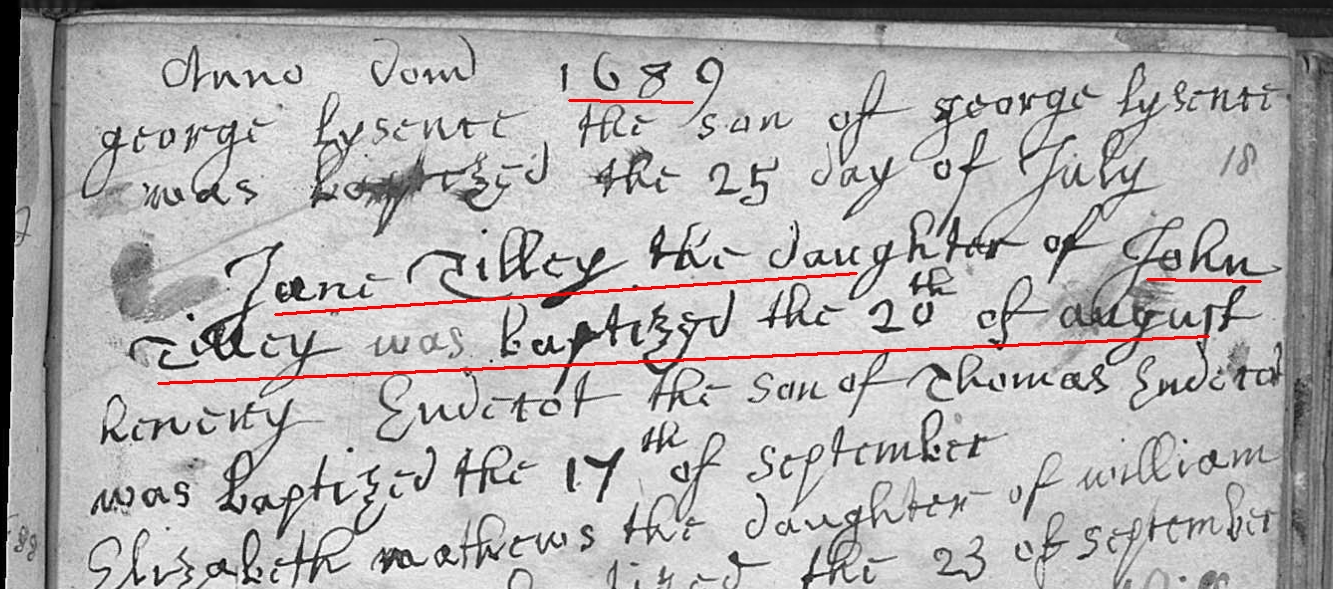 Anno dom 1689
george Lysente the son of george Lysente
was baptized the 25 day of July
18
Jane Tilley the daughter of John
Tilley was baptized the 20th of august
henery Endetot the son of Thomas Endetot
was baptized the 17th of September
Elizabeth mathews the daughter of william
the 23 of September
88